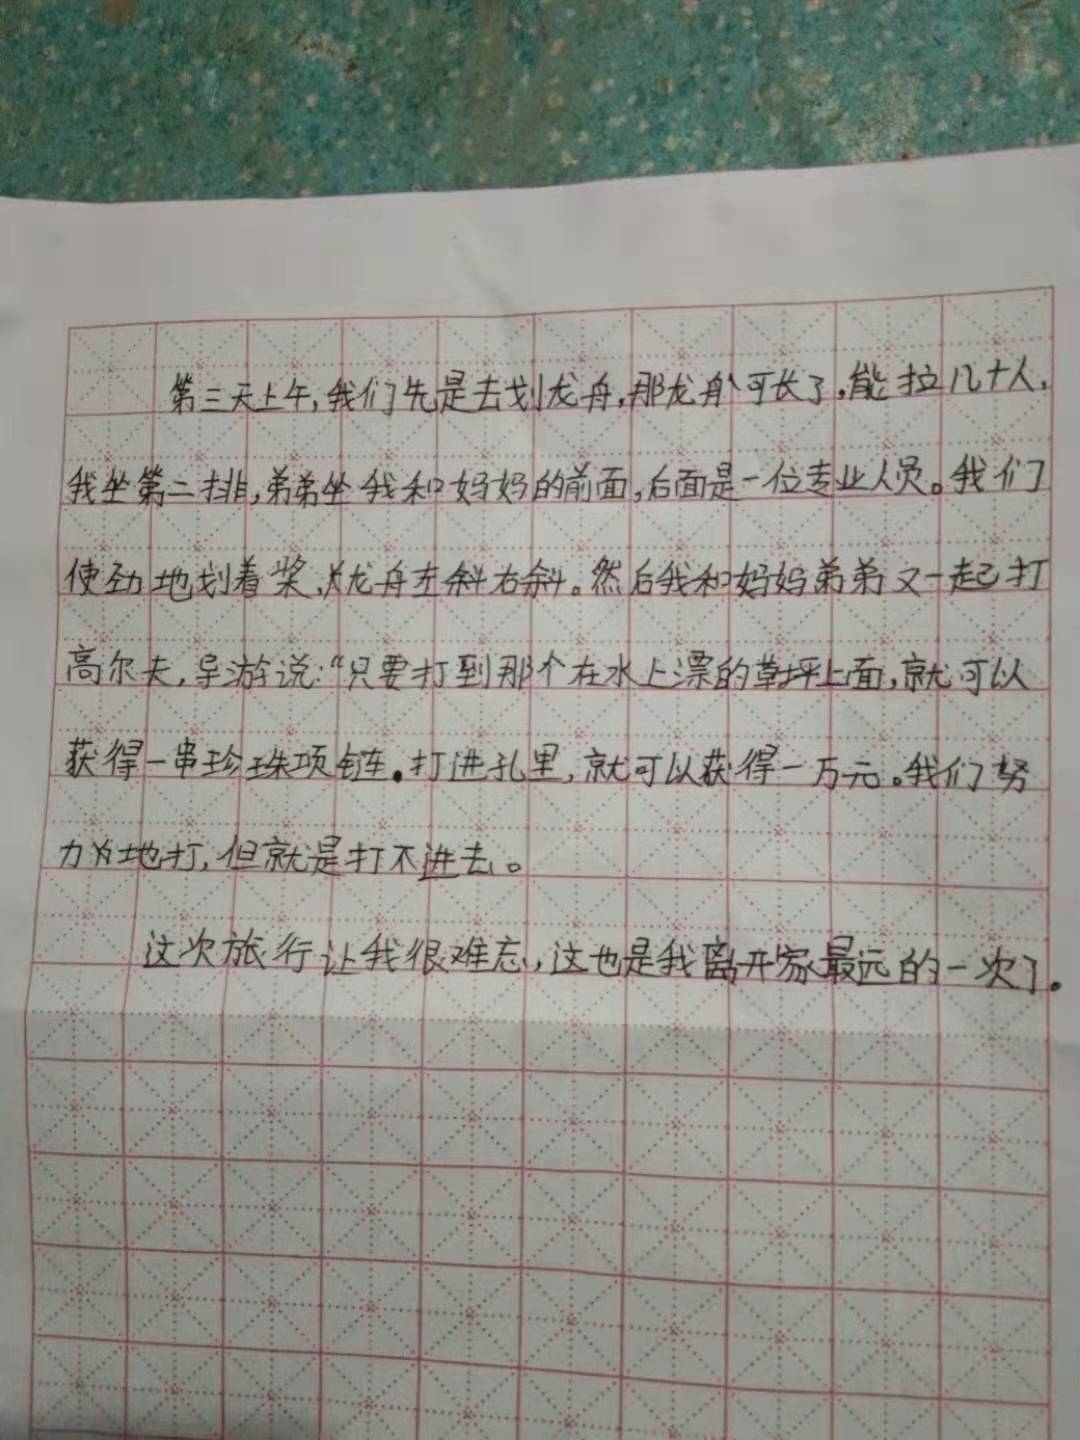 第三天上午,我们先是去划龙舟,那龙舟可长了,能拉几十人,
我坐第二排,弟弟坐我和妈妈的前面,后面是一位专业人员。我们
使劲地划着桨,龙舟左斜右斜。然后我和妈妈弟弟又一起打
高尔夫,导游说:“只要打到那个在水上漂的草坪上面,就可以
获得一串珍珠项链。打进孔里,就可以获得一万元。我们努
力地打,但就是打不进去。
这次旅行让我很难忘,这也是我离开家最远的一次了。